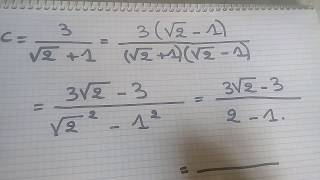 C = 3 / (√2 + 1) = 3(√2 - 1) / ((√2 + 1)(√2 - 1))
= (3√2 - 3) / (√2² - 1²) = (3√2 - 3) / (2 - 1.)
= ―